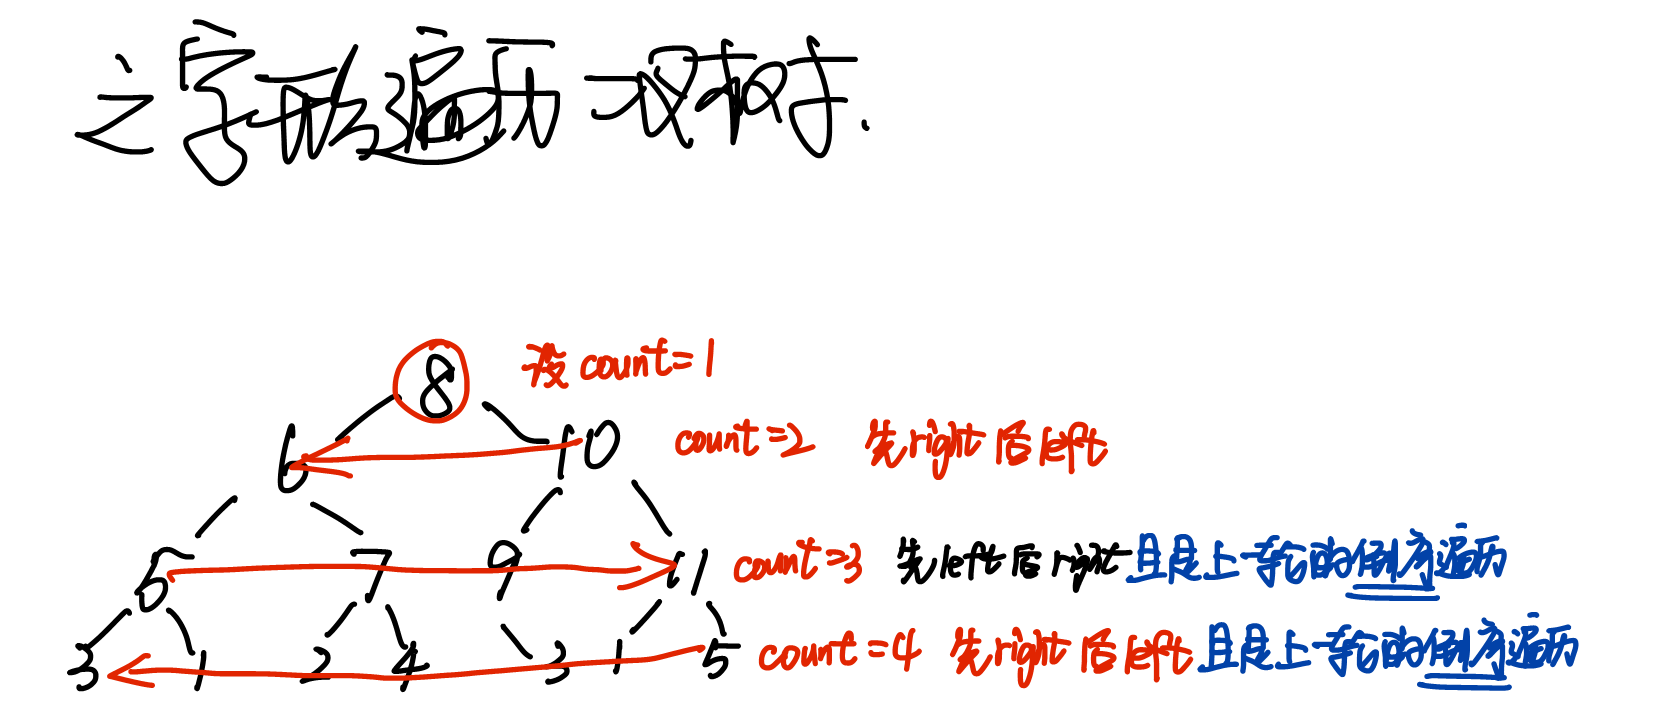 之字形遍历二叉树.
8 设count=1
6 10 count=2 先right后left
5 7 9 11 count=3 先left后right且是上一轮的倒序遍历
3 1 2 4 3 1 5 count=4 先right后left且是上一轮的倒序遍历